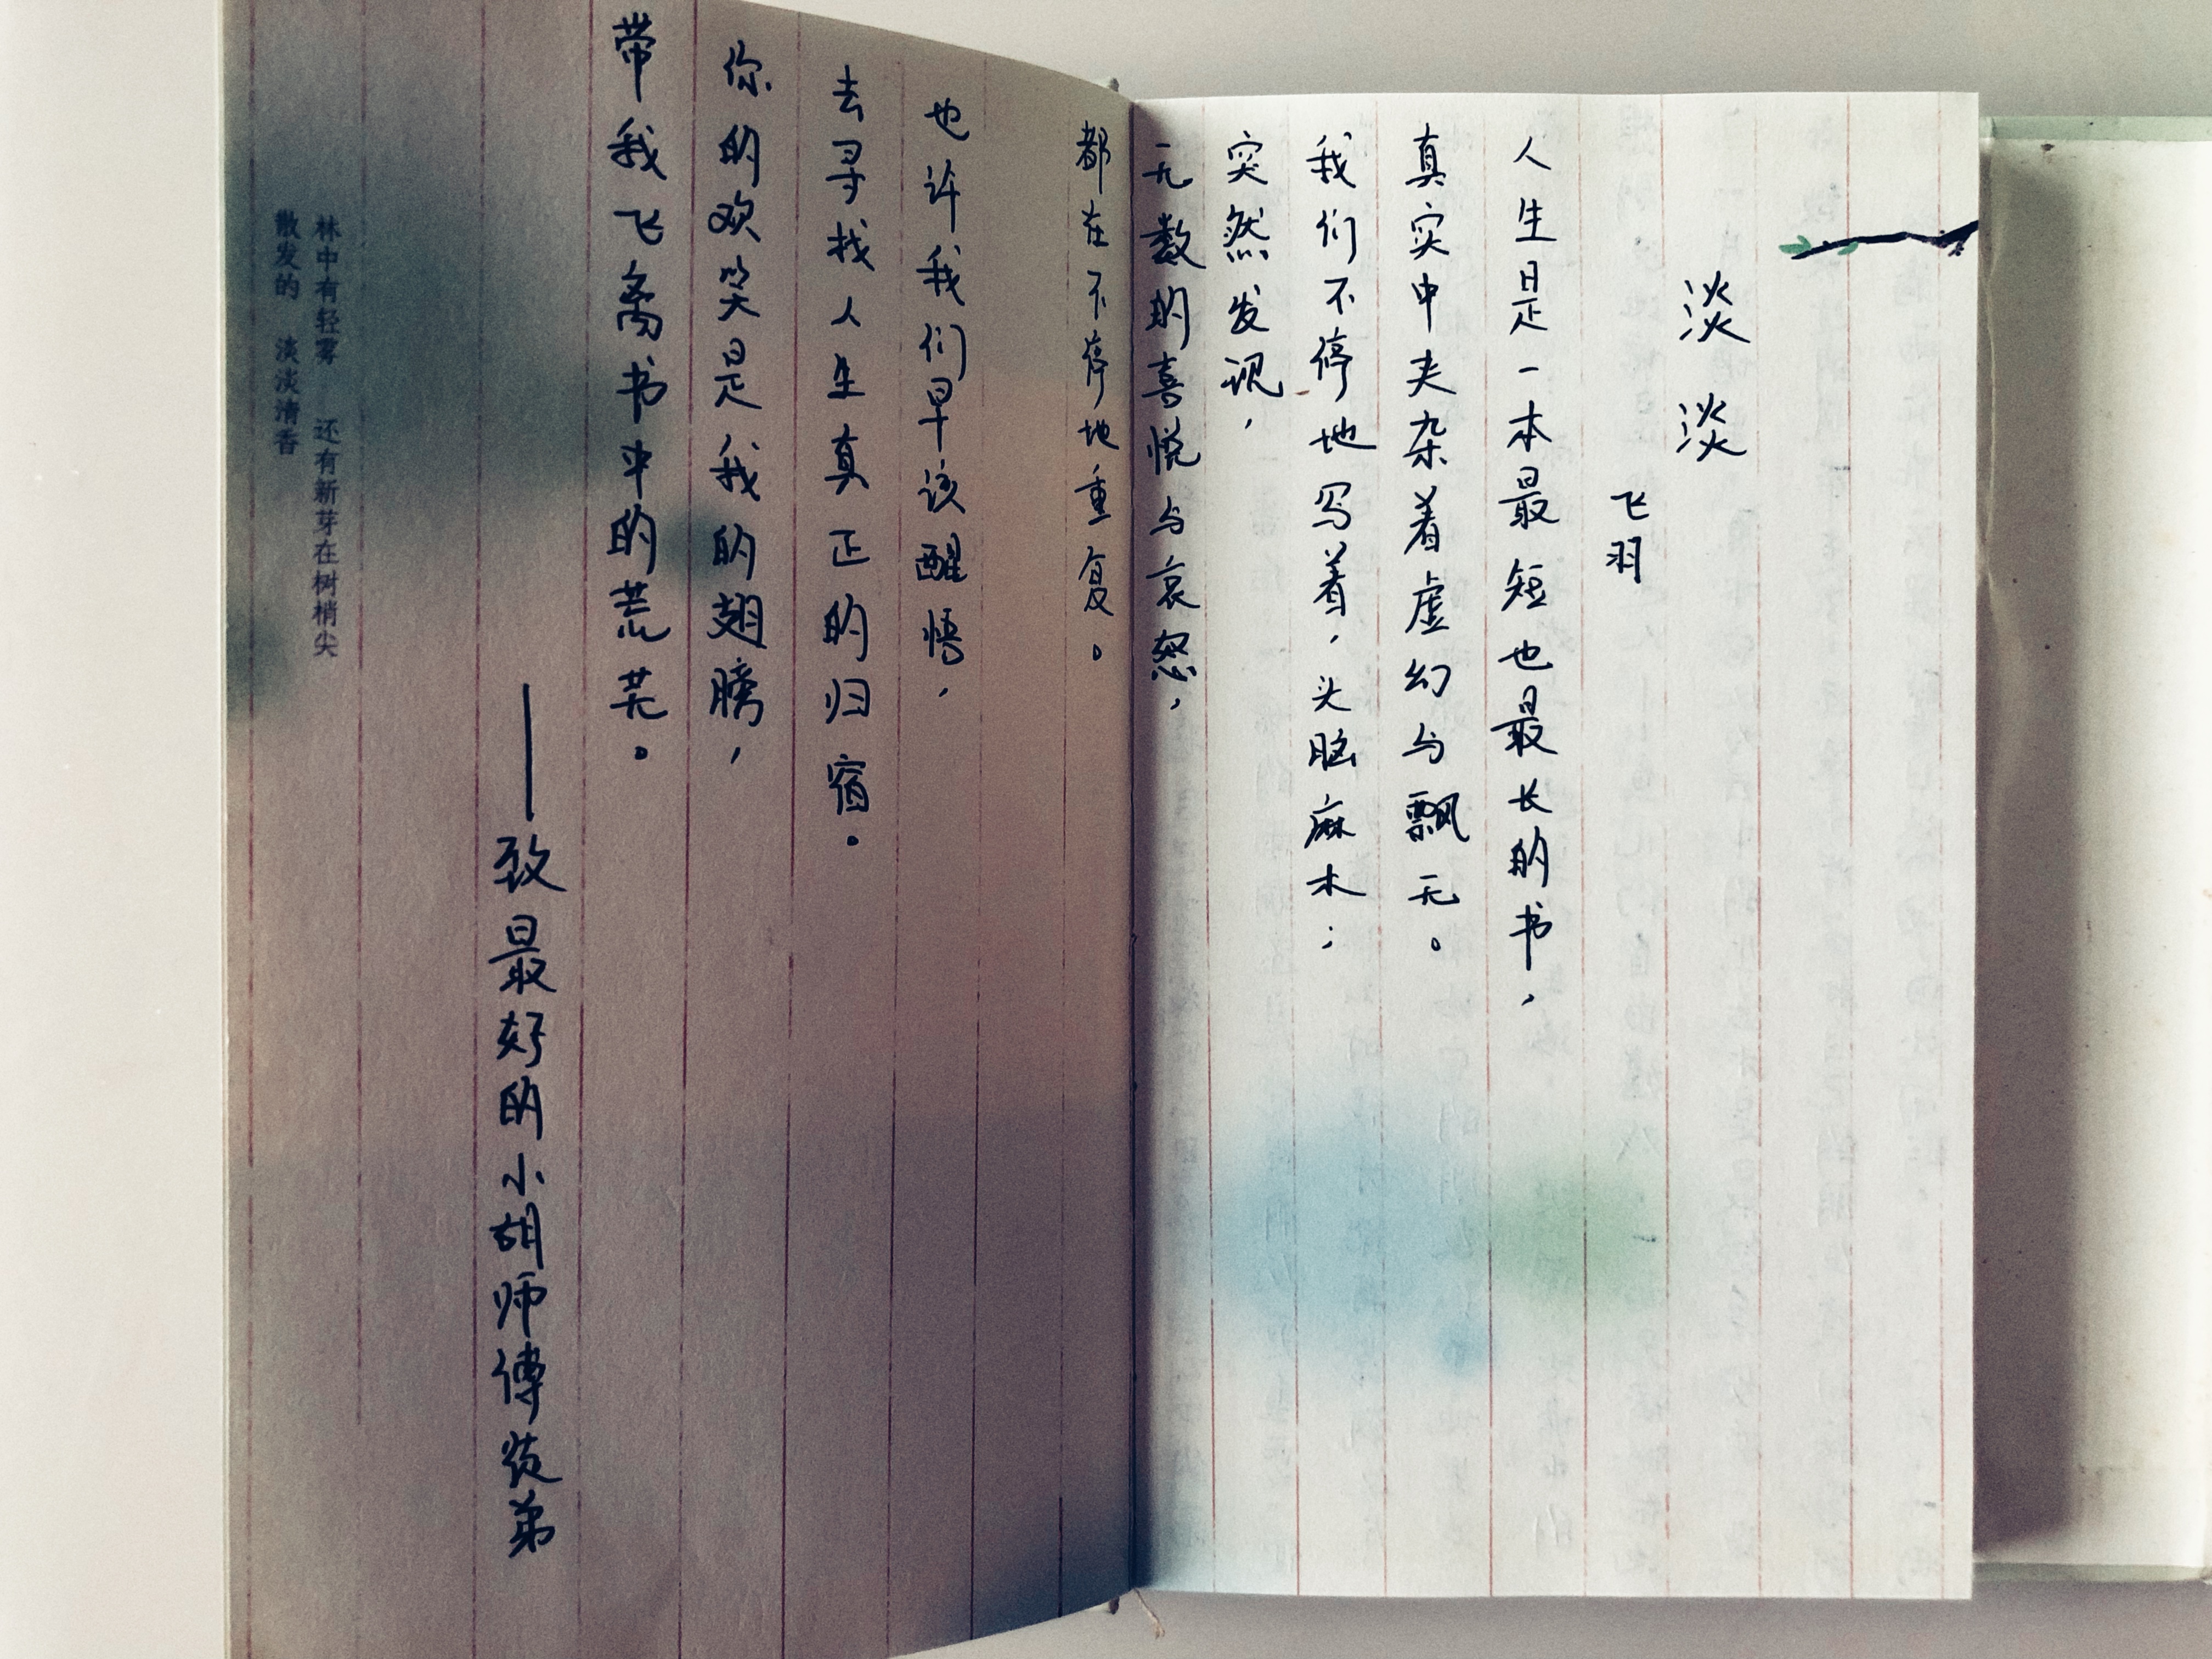 淡淡
飞羽
人生是一本最短也最长的书，
真实中夹杂着虚幻与飘无。
我们不停地写着，头脑麻木；
突然发现，
无数的喜悦与哀怨，
都在不停地重复。
也许我们早该醒悟，
去寻找人生真正的归宿。
你的欢笑是我的翅膀，
带我飞离书中的荒芜。
——致最好的小胡师傅徒弟
林中有轻雾 还有新芽在树梢尖
散发的 淡淡清香